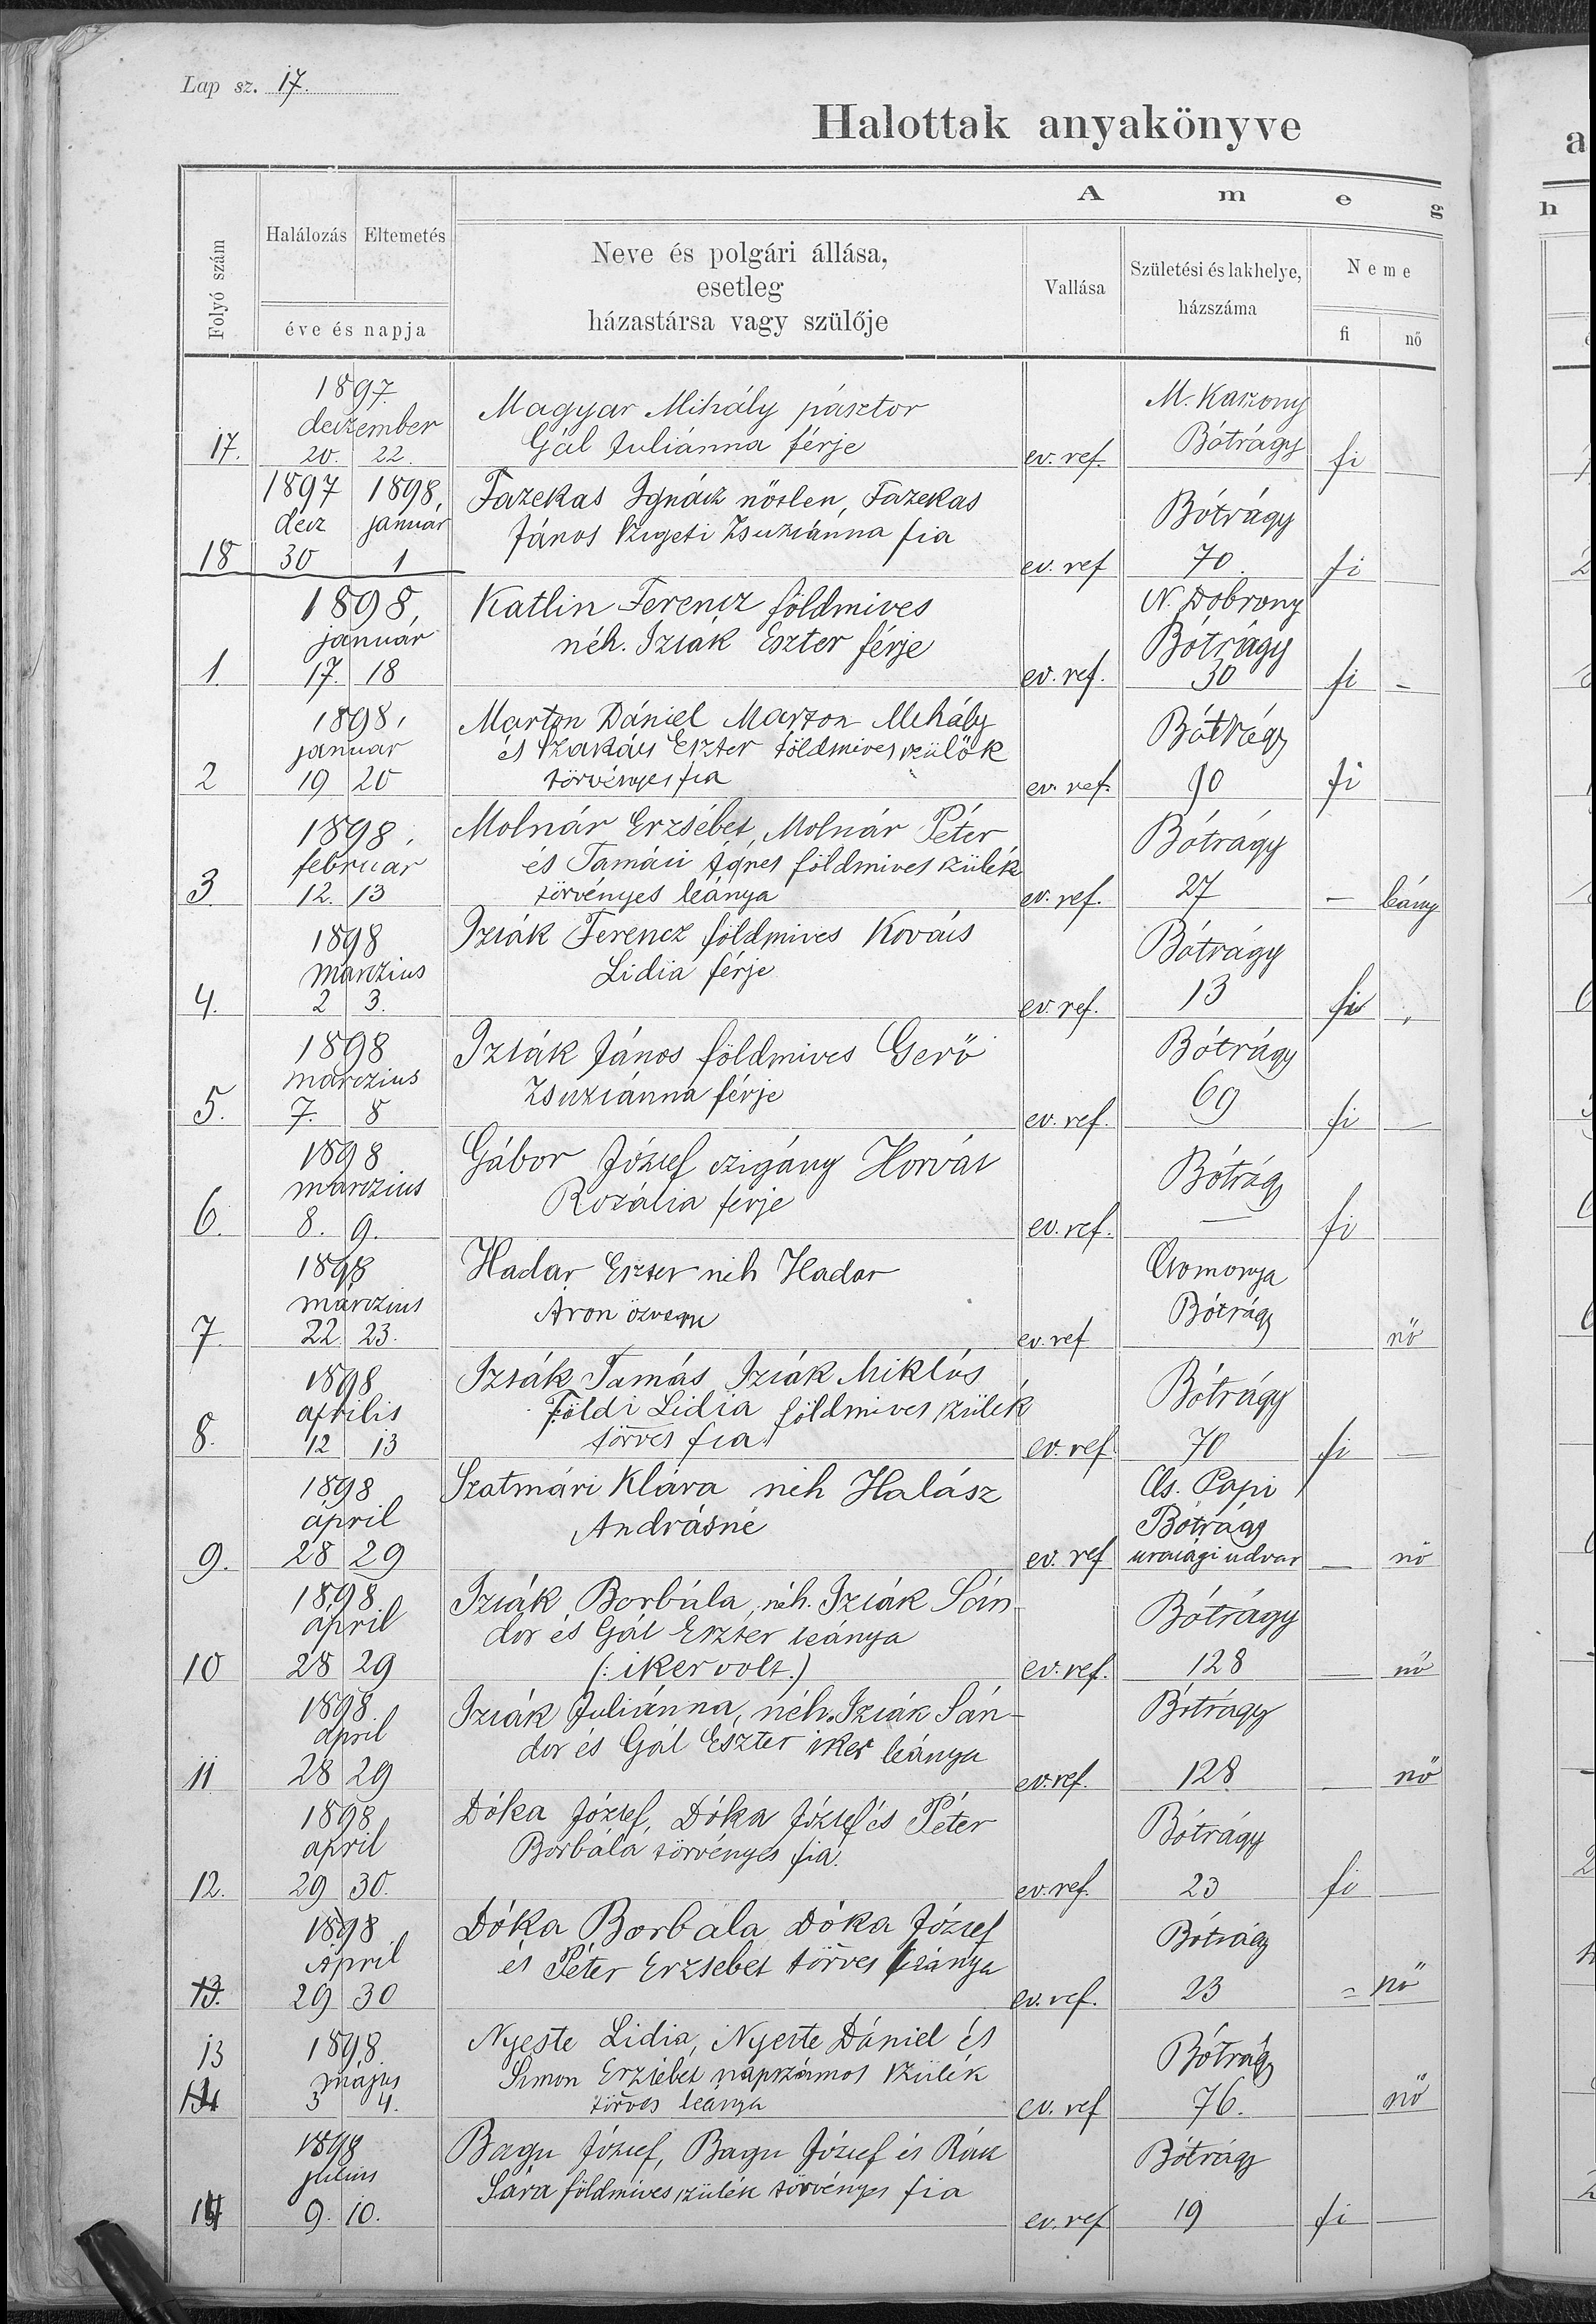 Lap sz. 17.
Halottak anyakönyve
A m e g
Folyó szám
Halálozás Eltemetés
éve és napja
Neve és polgári állása,
esetleg
házastársa vagy szülője
Vallása
Születési és lakhelye,
házszáma
Neme
fi nő
1897
deczember
17. 20. 22.
Magyar Mihály pásztor
Gál Juliánna férje
ev. ref.
M. Kaszony
Bótrágy
fi
1897 1898,
decz január
18 30 1
Fazekas Ignácz nőtlen, Fazekas
János Szigeti Zsuzsánna fia
ev. ref
Bótrágy
70.
fi
1898,
január
1. 17. 18
Katlin Ferencz földmives
néh. Izsák Eszter férje
ev. ref.
N. Dobrony
Bótrágy
30
fi -
1898,
január
2 19 20
Marton Dániel Marton Mihály
és Szakács Eszter földmives szülők
törvényes fia
ev. ref.
Bótrágy
90
fi
1898,
február
3. 12. 13
Molnár Erzsébet, Molnár Péter
és Tamási Ágnes földmives szülék
törvényes leánya
ev. ref.
Bótrágy
27
- leány
1898
márczius
4. 2 3.
Izsák Ferencz földmives Kovács
Lidia férje
ev. ref.
Bótrágy
13
fi
1898
márczius
5. 7. 8
Izsák János földmives Gerő
Zsuzsánna férje
ev. ref.
Bótrágy
69
fi —
1898
márczius
6. 8. 9.
Gábor József czigány Horvát
Rozália férje
ev. ref.
Bótrágy
—
fi
1898
márczius
7. 22. 23.
Hadar Eszter néh Hadar
Áron özvegye
ev. ref
Csomonya
Bótrágy
nő
1898
április
8. 12 13
Izsák Tamás, Izsák Miklós
Földi Lidia földmives szülék
törves fia
ev. ref
Bótrágy
70
fi —
1898
ápril
9. 28 29
Szatmári Klára néh Halász
Andrásné
ev. ref
Cs. Papi
Bótrágy
urasági udvar
— nő
1898
ápril
10 28 29
Izsák Borbála, néh. Izsák Sán-
dor és Gál Eszter leánya
(: iker volt.)
ev. ref.
Bótrágy
128
— nő
1898.
ápril
11 28 29
Izsák Juliánna, néh. Izsák Sán-
dor és Gál Eszter iker leánya
ev. ref.
Bótrágy
128
— nő
1898
april
12. 29 30.
Dóka József, Dóka József és Péter
Borbála törvényes fia.
ev. ref.
Bótrágy
23
fi —
1898
Április
13. 29 30
Dóka Borbála Dóka József
és Péter Erzsébet törves leánya
ev. ref.
Bótrágy
23
= nő
13 1898.
május
3 4.
Nyeste Lidia, Nyeste Dániel és
Simon Erzsébet napszámos szülék
törves leánya
ev. ref
Bótrágy
76.
— nő
1898
julius
14 9. 10.
Bagu József, Bagu József és Rácz
Sára földmives szülék törvényes fia
ev. ref
Bótrágy
19
fi —